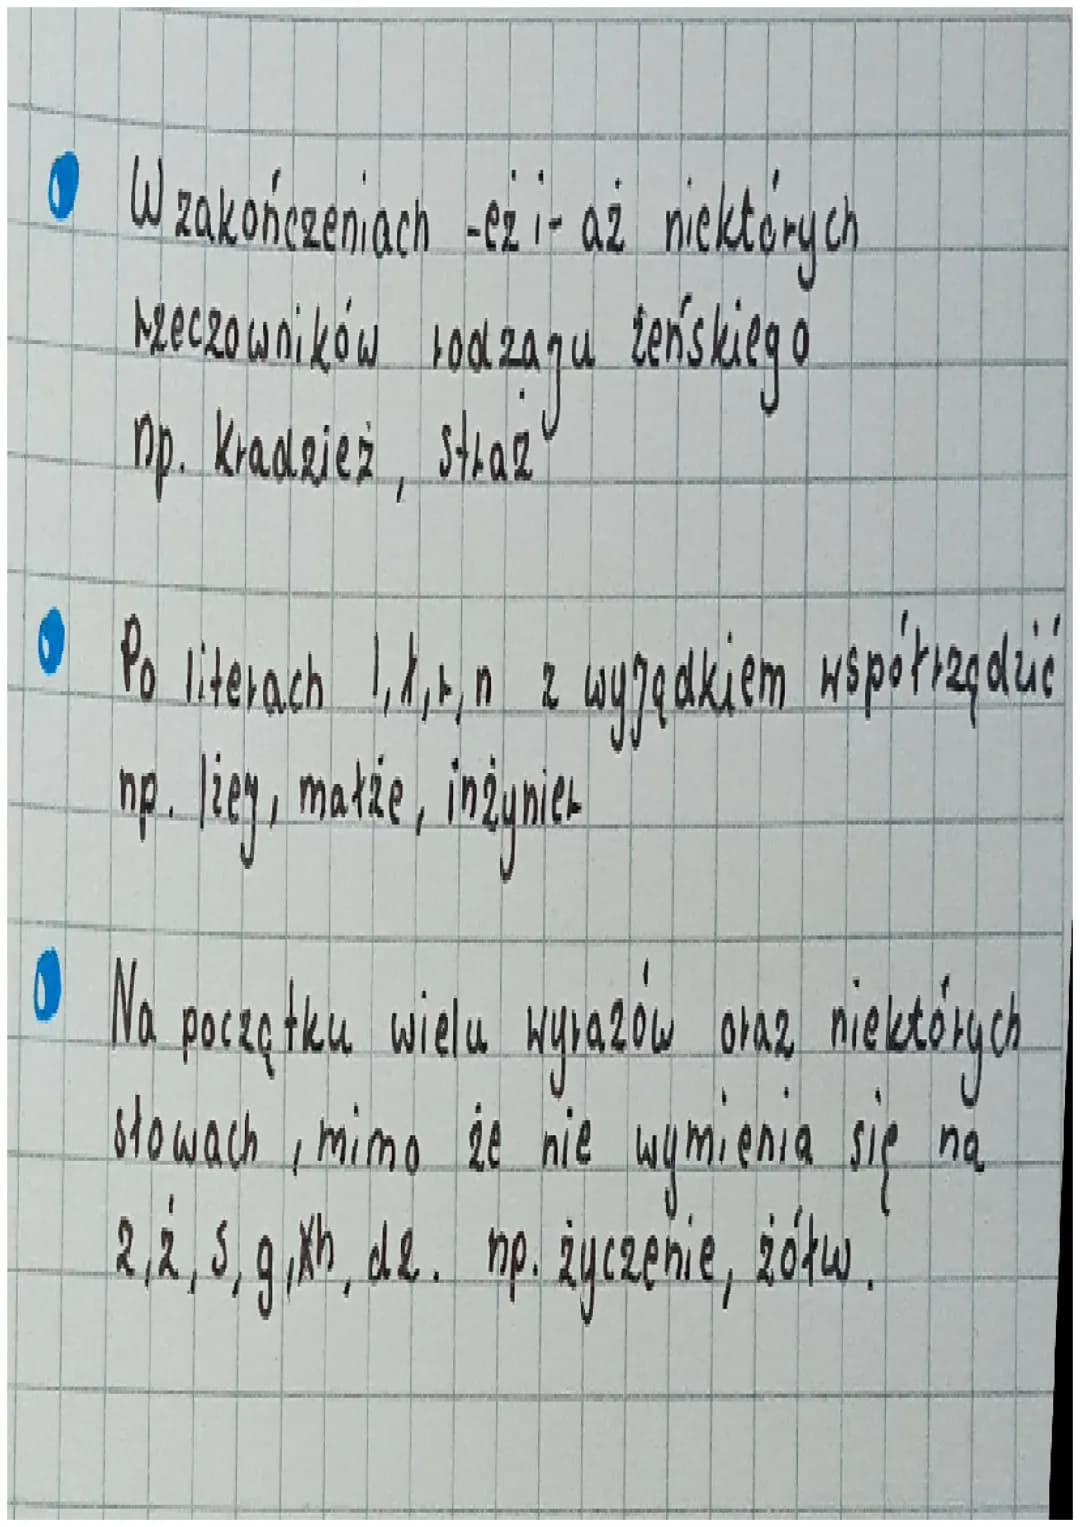 W zakończeniach -eż i- aż niektórych
rzeczowników rodzaju żeńskiego
np. kradzież, straż
Po literach l, ł, r, n z wyjądkiem współrządzić
np. lżej, małże, inżynier
Na początku wielu wyrazów oraz niektórych
słowach, mimo że nie wymienia się na
z, ź, s, g, h, dz. np. życzenie, żółw.